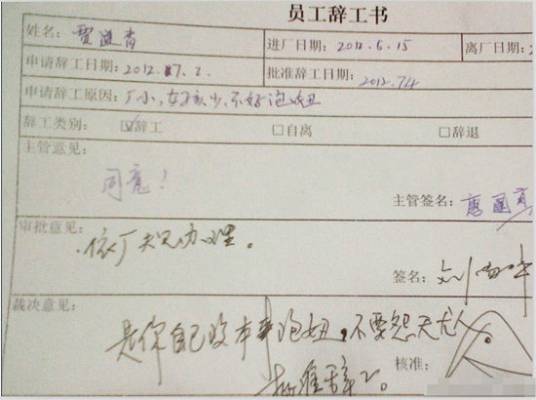 员工辞工书
姓名: 进厂日期: 2012.6.15 离厂日期: 2
申请辞工日期: 2012.7.2. 批准辞工日期: 2012.7.4
申请辞工原因: 厂小,女孩少,不好泡妞
辞工类别: ☑辞工 □自离 □辞退
主管意见:
同意!
主管签名: 唐国
审批意见:
依厂规办理。
签名: 刘
裁决意见:
是你自己没本事泡妞,不要怨天尤人
核准:
批准辞工。